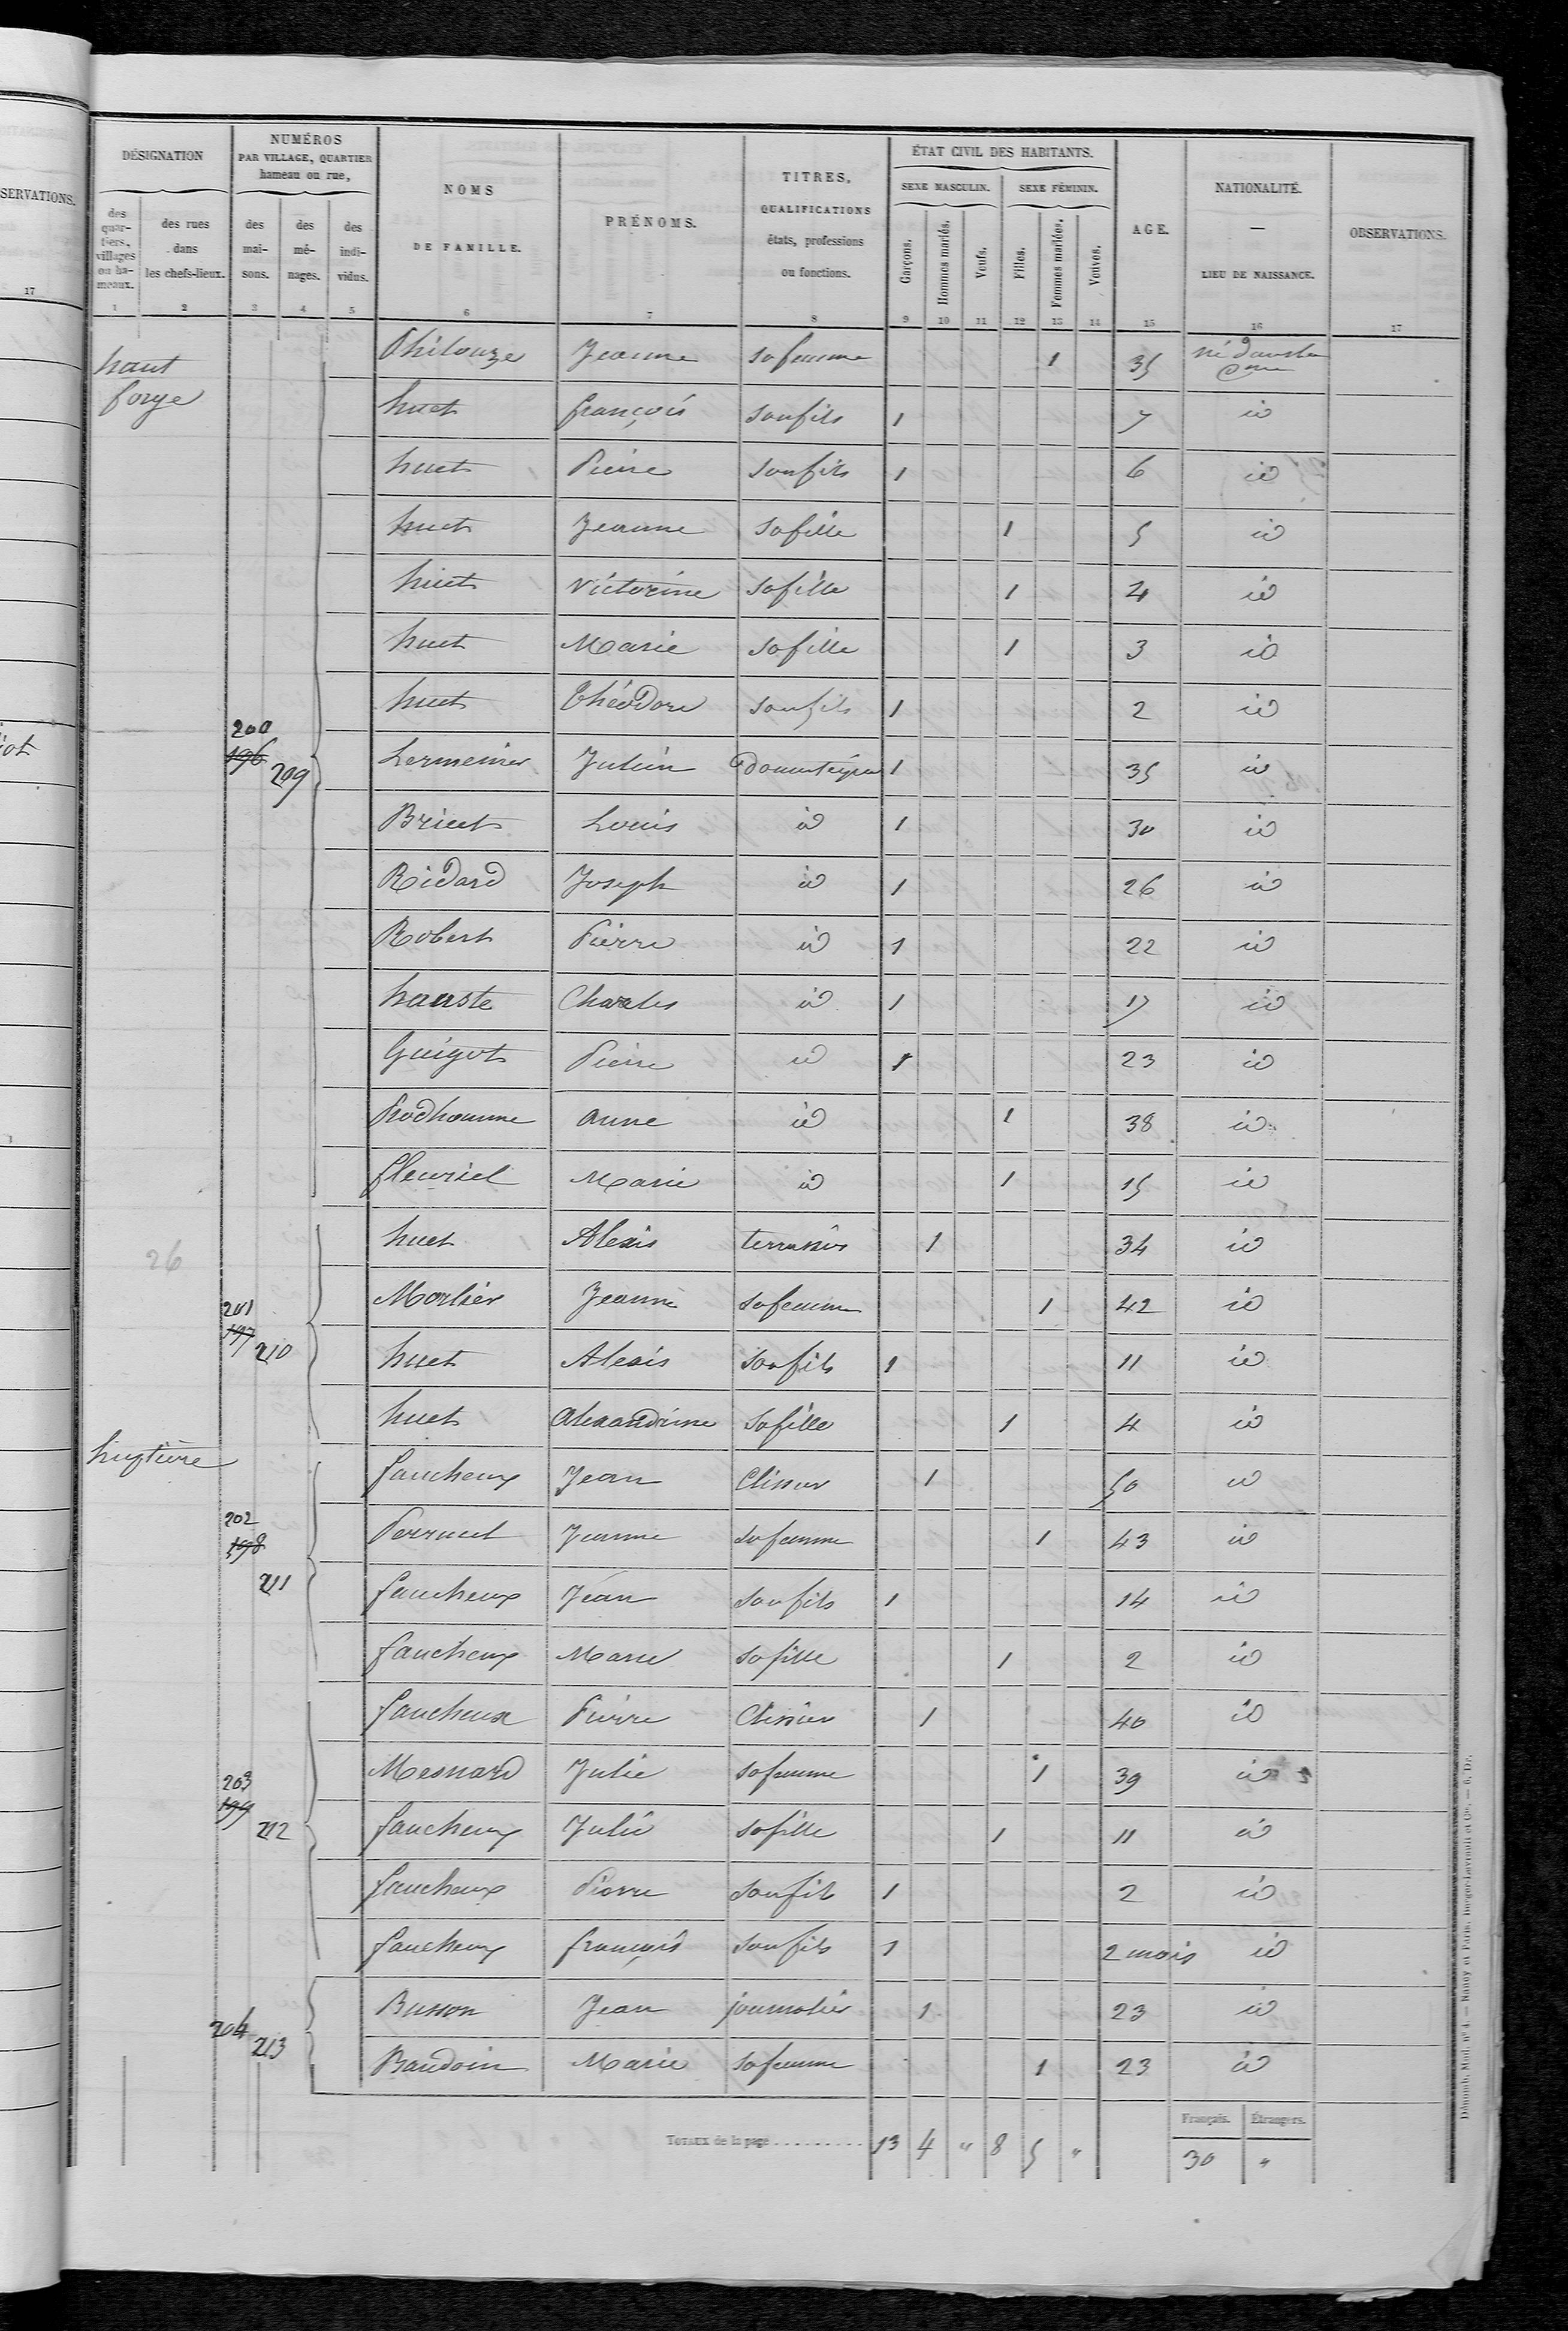 SERVATIONS.
17
DÉSIGNATION
NUMÉROS
PAR VILLAGE, QUARTIER
hameau ou rue,
NOMS
DE FAMILLE.
PRÉNOMS.
TITRES,
QUALIFICATIONS
états, professions
ou fonctions.
ÉTAT CIVIL DES HABITANTS.
SEXE MASCULIN.
SEXE FÉMININ.
AGE.
NATIONALITÉ.
—
LIEU DE NAISSANCE.
OBSERVATIONS.
des quar-tiers, villages ou ha-meaux.
des rues dans les chefs-lieux.
des mai-sons.
des mé-nages.
des indi-vidus.
Garçons.
Hommes mariés.
Veufs.
Filles.
Femmes mariées.
Veuves.
1 2 3 4 5 6 7 8 9 10 11 12 13 14 15 16 17
haut forge
Philouze Jeanne sa femme 1 35 né dans la
huet françois son fils 1 7 id
huet Pierre son fils 1 6 id
huet Jeanne sa fille 1 5 id
huet Victorine sa fille 1 4 id
huet Marie sa fille 1 3 id
huet théodore son fils 1 2 id
200 196 209
Lermenier Julien domestique 1 35 id
Briect Louis id 1 30 id
Ridard Joseph id 1 26 id
Robert Pierre id 1 22 id
hauste Charles id 1 17 id
Guigot Pierre id 1 23 id
Prodhomme anne id 1 38 id
fleuriel Marie id 1 15 id
26
huet Alexis terrassier 1 34 id
201 197 210
Morlier Jeanne sa femme 1 42 id
huet Alexis son fils 1 11 id
huet Alexandrine sa fille 1 4 id
faucheux Jean Clissier 1 50 id
202 198 211
Perruel Jeanne sa femme 1 43 id
faucheux Jean son fils 1 14 id
faucheux Marie sa fille 1 2 id
faucheux Pierre Clissier 1 40 id
203 199 212
Mesnard Julie sa femme 1 39 id
faucheux Julie sa fille 1 11 id
faucheux Pierre son fils 1 2 id
faucheux françois son fils 1 2 mois id
204 213
Busson Jean journalier 1 23 id
Baudoin Marie sa femme 1 23 id
Français. Étrangers.
TOTAUX de la page . . . . . . . . . . 13 4 " 8 5 " 30 "
Dénomb. Mod. n° 4. — Nancy et Paris, Berger-Levrault et Cie. — 6. Dr.